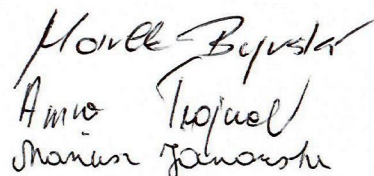 Marek Byrski
Anna Trojnal
Mariusz Janowski